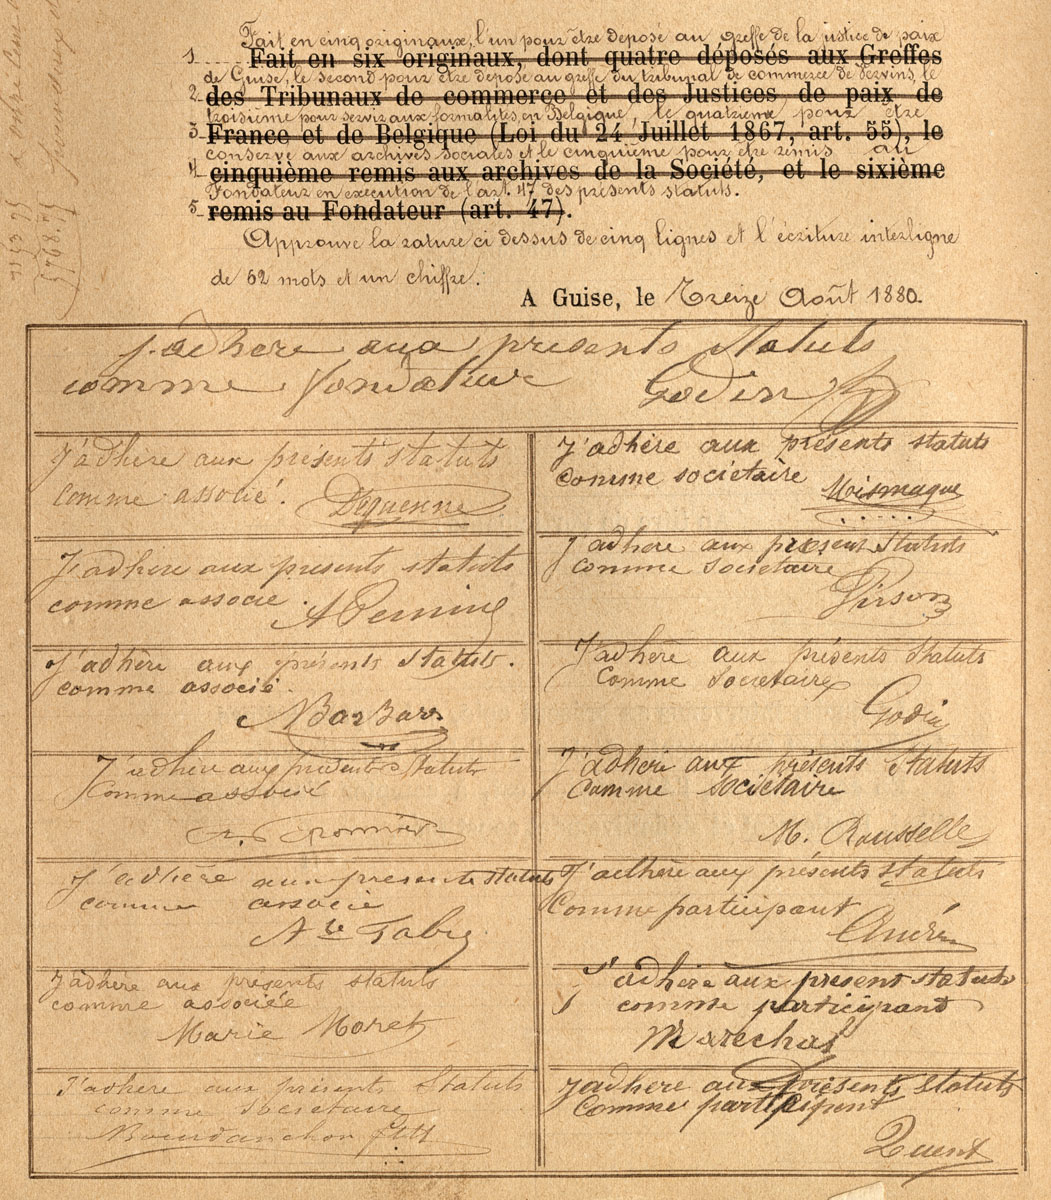 Fait en cinq originaux, l'un pour être déposé au greffe de la justice de paix
1 Fait en six originaux, dont quatre déposés aux Greffes
de Guise, le second pour être déposé au greffe du tribunal de commerce de Vervins, le
2 des Tribunaux de commerce et des Justices de paix de
troisième pour servir aux formalités, en Belgique, le quatrième pour être
3 France et de Belgique (Loi du 24 Juillet 1867, art. 55), le
conservé aux archives sociales et le cinquième pour être remis au
4 cinquième remis aux archives de la Société, et le sixième
Fondateur en exécution de l'art. 47 des présents statuts.
5 remis au Fondateur (art. 47).
Approuvé la rature ci dessus de cinq lignes et l'écriture interligne
de 62 mots et un chiffre.
A Guise, le Treize Août 1880.
J'adhère aux présents statuts
comme Fondateur Godin
J'adhère aux présents statuts
comme associé. Dequenne
J'adhère aux présents statuts
comme associé. A Pernin
J'adhère aux présents statuts.
comme associé.
Barbary
J'adhère aux présents statuts
comme associé
J'adhère aux present statuts
comme associé
Are Fabry
J'adhère aux présents statuts
comme associée
Marie Moret
J'adhère aux présents Statuts
comme Sociétaire
J'adhère aux présents statuts
comme sociétaire
J'adhère aux présent Statuts
comme Sociétaire
Pirson
J'adhère aux présents Statuts
Comme Sociétaire
Godin
J'adhère aux présents Statuts
Comme sociétaire
M. Rousselle
J'adhère aux présents statuts
Comme participant
André
J'adhère aux present statuts
comme participant
Maréchal
J'adhère aux présents statuts
Comme participent
Quent